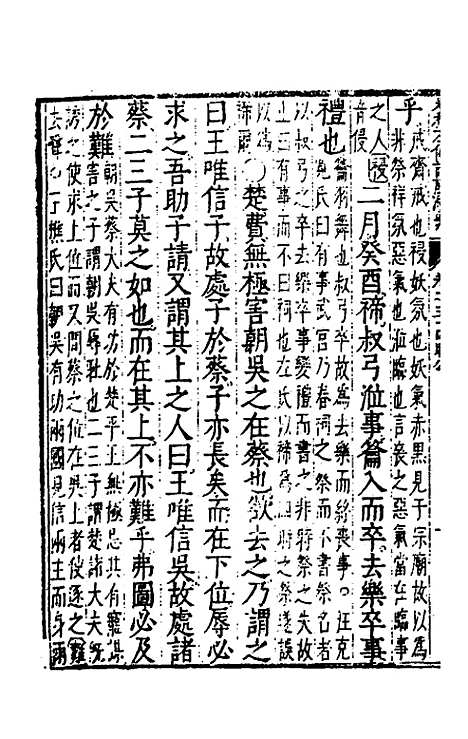 乎 戒齊戒也祲妖氛也妖氣赤黑見于宗廟故以爲
非祭祥氛惡氣也涖臨也言喪之惡氣當在臨事
之人
音侵
二月癸酉禘叔弓涖事籥入而卒去樂卒事
禮也 籥籥舞也叔弓卒故去樂而終喪事○汪克
寬氏曰有事武宮乃春祠之祭而不書祭名者
以叔弓之卒去樂卒事變禮而書之非特祭之失故
止曰有事而不曰祠也左氏以禘爲四時之祭遂誤
以爲
禘爾
○楚費無極害朝吳之在蔡也欲去之乃謂之
曰王唯信子故處子於蔡子亦長矣而在下位辱必
求之吾助子請又謂其上之人曰王唯信吳故處諸
蔡二三子莫之如也而在其上不亦難乎弗圖必及
於難 朝吳蔡大夫有功於楚平王無極忌其有寵
害之子謂朝吳辱耻也二三子謂楚諸大夫既
誘之使求上位而又間蔡之在吳上者使逐之
氏曰朝吳有功兩國見信兩主而身